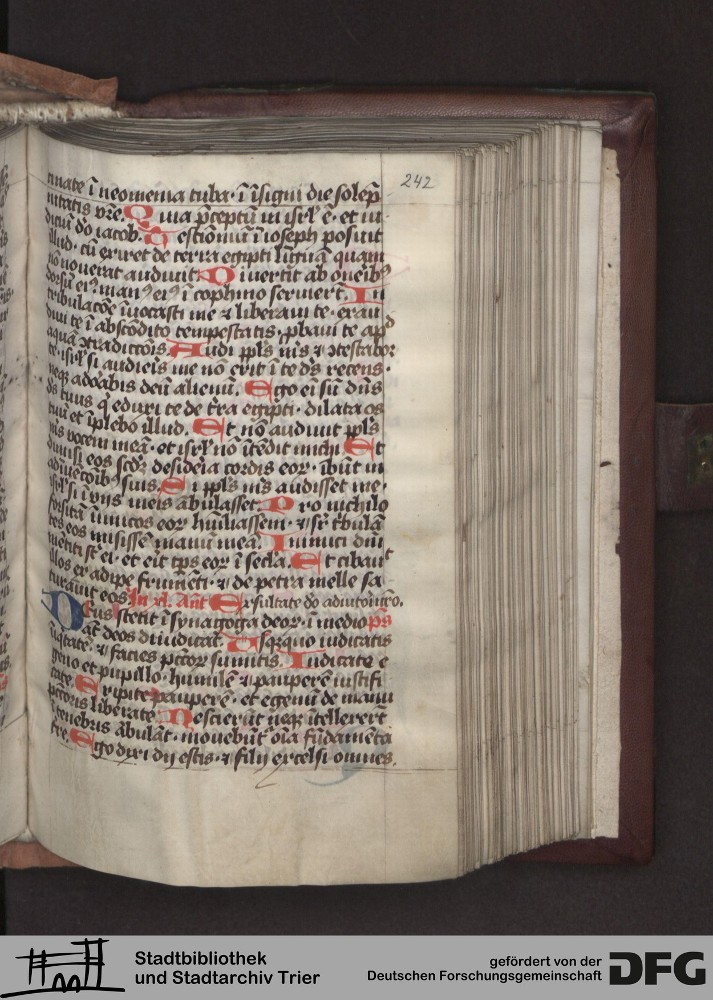 242
cinate ī neomenia tuba · ī īsigni die solēp
nitatis vr̄e. Q uia p̄ceptū in isrl̄ ē · et iu
diciū d̄o iacob. T estīoniū ī ioseph posuit
illud · cū exiret de terra egipti līguā quam
nō nouerat audiuit. D iuertit ab oneib⁹
dorsū ei⁹ · man⁹ ei⁹ ī cophino seruiert̄. In
tribulacōe īuocasti me ⁊ liberaui te · exau
diui te ī abscōdito tempestatis · ꝓbaui te apd
aquā ꝯtradictōis. Audi ppl̄s m̄s ⁊ ꝯtestabor
te · isrl̄ si audieris me nō erit ī te d̄s recens ·
neq̄ adorabis deū alienū. Ego ei sū dn̄s
d̄s tuus q̄ eduxi te de tr̄a egipti · dilata os
tuū et īplebo illud. Et nō audiuit ppl̄s
m̄s vocem meā · et isrl̄ nō ītēdit michi. Et
dimisi eos scd̄ꝫ desideria cordis eoꝝ · ibūt in
adīuētōib⁹ suis. Si ppl̄s m̄s audisset me ·
isrl̄ si ī vijs meis ābulasset. Pro nichilo
forsitā īimicos eoꝝ hūiliassem · ⁊ sr̄ t̄bulā
tes eos misissē manū meā. Inimici dn̄i
mētiti st̄ ei · et eit tp̄s eoꝝ ī secla. Et cibauit
illos ex adipe frumēti · ⁊ de petra melle sa
turauit eos. In xl. Ant̄ Exsultate d̄o adiutori nr̄o.
Deus stetit ī synagoga deoꝝ · ī medio p̄s
aūt deos diiudicat. Usq̄quo iudicatis
īiq̄tatē · ⁊ facies pctōꝝ sumitis. Iudicate e
geno et pupillo · humilē ⁊ pauperē iustifi
cate. Eripite pauperē · et egenū de manu
pctōris liberate. Nescierūt neq̄ ītellexert̄
ī tenebris ābulāt · mouebūt͛ oīa fūdamēta
tr̄e. Ego dixi dij estis · ⁊ filij excelsi omnes.
Stadtbibliothek
und Stadtarchiv Trier
gefördert von der
Deutschen Forschungsgemeinschaft DFG